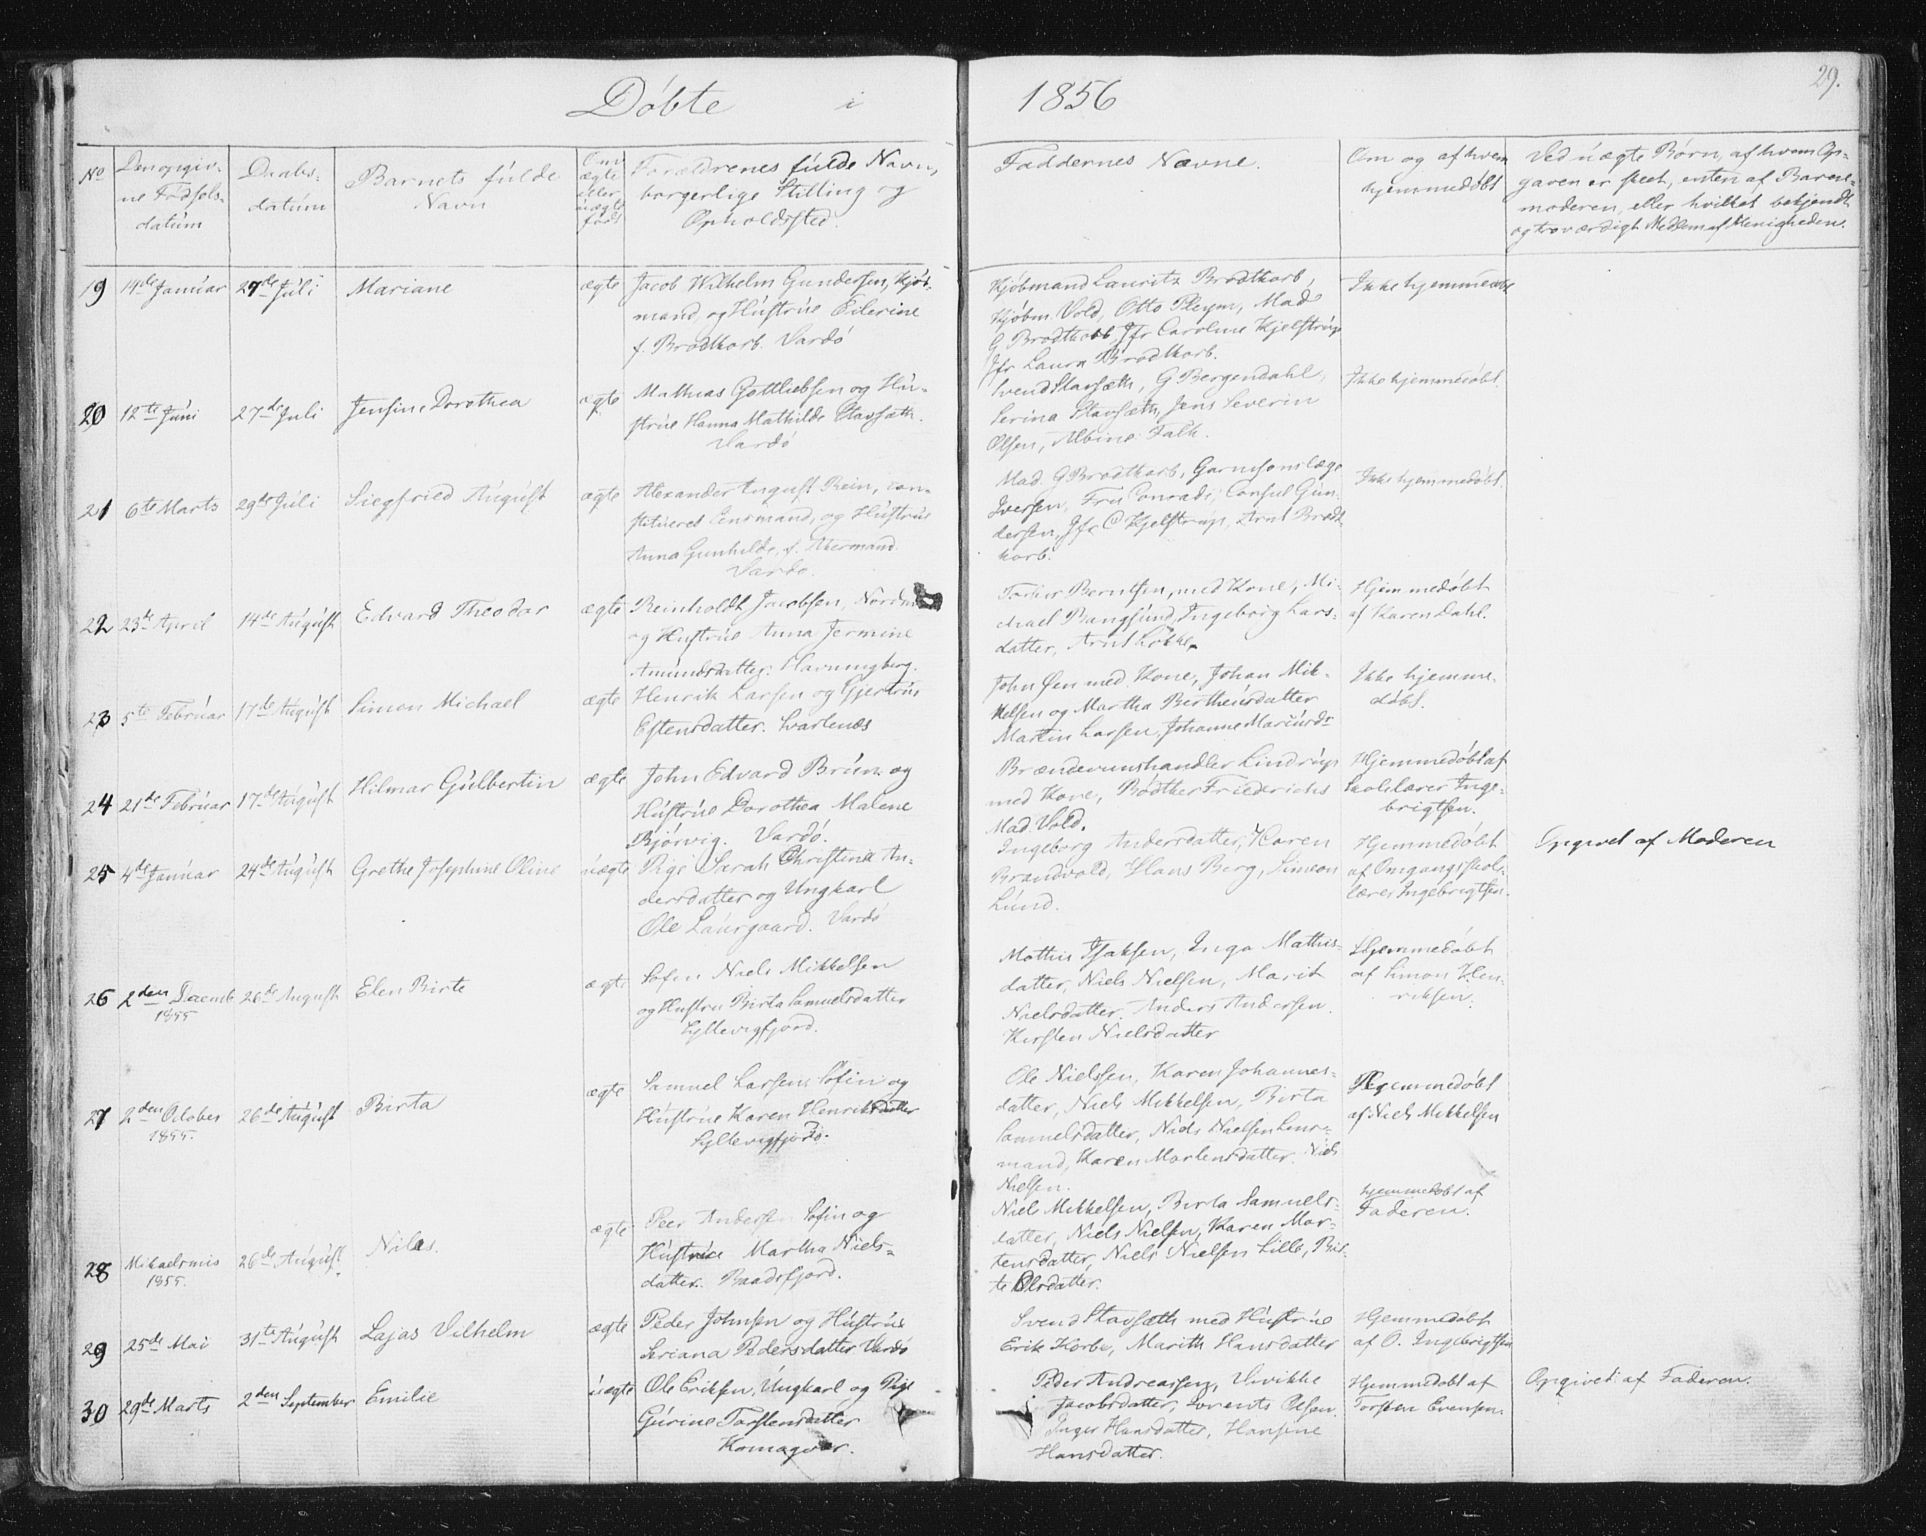 Döbte i 1856
29.
No
Den opgiv-
ne Födsels-
datum
Daabs-
datum
Barnets fulde
Navn
Om
ægte
eller
uægte
födt
Forældrenes fulde Navn,
borgerlige Stilling og
Opholdssted.
Faddernes Navne.
Om og af hvem
hjemmedöbt
Ved uægte Börn, af hvem Op-
gaven er skeet, enten af Barne-
moderen, eller hvilket bekjendt
og troværdigt Medlem af Menigheden.
19 14de Januar 27de Juli Mariane ægte
Jacob Wilhelm Gundersen, Kjöb-
mand, og Hustrue Eilerine
f. Brodtkorb. Vardö
Kjöbmand Lauritz Brodtkorb,
Kjöbm. Vold, Otto Pleym, Mad.
G. Brodtkorb, Jfr Caroline Kjelstrup
Jfr Laura Brodtkorb.
Ikke hjemmedöbt
20 12te Juni 27de Juli Jensine Dorothea ægte
Mathias Gottliebsen og Hu-
strue Hanna Mathilde Stavsæth.
Vardö
Svend Stavsæth, G Bergendahl,
Serina Stavsæth, Jens Severin
Olsen, Albine Falk.
Ikke hjemmedöbt.
21 6te Marts 29de Juli Siegfried August ægte
Alexander August Rein, con-
stitueret Lensmand, og Hustrue
Anna Gunhilde, f. Akermand.
Vardö.
Mad. G Brodtkorb, Garnisonslæge
Iversen, Fru Conradi, Consul Gun-
dersen, Jfr. C Kjelstrup, Arnt Brodt
korb.
Ikke hjemmedöbt.
22 23de April 14de August Edvard Theodor ægte
Reinholdt Jacobsen, Nordm
og Hustrue Anna Jermine
Amundsdatter. Havningberg.
Berntsen, med Kone, Mi-
chael Bangsund, Ingeborg Lars-
datter, Arnt Lökke.
Hjemmedöbt
af Karen Dahl.
23 5te Februar 17de August Simon Michael ægte
Henrik Larsen og Gjertrue
Estensdatter. Svartnæs
John Öen med Kone, Johan Mik-
kelsen og Martha Bertheusdatter
Martin Larsen, Johanne Mariusdr
Ikke hjemme-
döbt.
24 21de Februar 17de August Hilmar Gulbertin ægte
John Edvard Bruun og
Hustrue Dorothea Malene
Björvig. Vardö.
Brændeviinshandler Lindrup
med Kone, Bödtker Friederichs
Mad. Vold.
Hjemmedöbt af
Skolelærer Inge-
brigtsen.
25 4de Januar 24de August Grethe Josephine Oline uægte
Pige Sarah Christina An-
dersdatter og Ungkarl
Ole Laurgaard. Vardö
Ingeborg Andersdatter, Karen
Brandvold, Hans Berg, Simeon
Lund.
Hjemmedöbt
af Omgangsskole-
lærer Ingebrigtsen.
Opgivet af Moderen
26 2den Decemb 1855 26de August Elen Birte ægte
Sofin Niels Mikkelsen
og Hustru Birta Samuelsdatter
Syltevigfjord.
Mathis Isaksen, Inga Mathis-
datter, Niels Nielsen, Marit
Nielsdatter, Anders Andersen.
Kirsten Nielsdatter
Hjemmedöbt
af Simon Hen-
riksen.
27 2den October 1855. 26de August Birta ægte
Samuel Larsen, Sofin og
Hustrue Karen Henriksdatter
Syltevigfjord.
Ole Nielssen, Karen Johannes-
datter, Niels Mikkelsen, Birta
Samuelsdatter, Niels Nielsen Lens-
mand, Karen Mortensdatter. Niels
Nielsen.
Hjemmedöbt
af Niels Mikkelsen
28 Mikaelsmis 1855. 26de August Niles. ægte
Peer Anders Sofin og
Hustrue Martha Niels-
datter. Baadsfjord.
Niels Mikkelsen, Birta Samuels-
datter, Niels Nielsen, Karen Mor-
tensdatter, Niels Nielsen Lille, Bir-
te Olsdatter.
hjemmedöbt af
Faderen.
29 25de Mai 31te August Lajas Vilhelm ægte
Peder Johnsen og Hustrue
Seriana Pedersdatter Vardö
Svend Stavsæth med Hustrue
Erik Korbi, Marith Hansdatter
Hjemmedöbt
af O. Ingebrigtsen
30 29de Marts 2den September Emilie uægte
Ole Eriksen, Ungkarl og Pige
Gurine Torstensdatter
Komagvær.
Peder Andreassen, Vivikke
Jacobsdatter, Lorents Olsen.
Inger Hansdatter, Hansine
Hansdatter.
Hjemmedöbt af
Torsten Evensen.
Opgivet af Faderen.